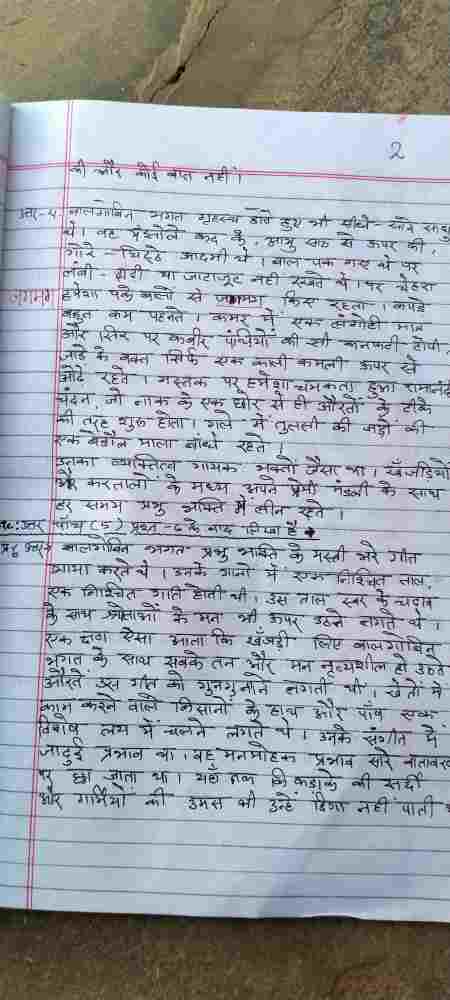 2
की और कोई बात नहीं।
उत्तर-4 बालगोबिन भगत गृहस्थ होते हुए भी सीधे-सादे साधु
थे। वह मंझोले कद के, आयु साठ से ऊपर की,
गोरे-चिट्टे आदमी थे। बाल पक गए थे पर
लंबी-दाढ़ी या जटाजूट नहीं रखते थे। पर चेहरा
जगमग हमेशा पके बालों से जगमग किए रहता। कपड़े
बहुत कम पहनते। कमर में एक लंगोटी मात्र
और सिर पर कबीर पंथियों की सी कनफटी टोपी,
जाड़े के वक्त सिर्फ एक काली कमली ऊपर से
ओढ़े रहते। मस्तक पर हमेशा चमकता हुआ रामानंदी
चंदन, जो नाक के एक छोर से ही औरतों के टीके
की तरह शुरू होता। गले में तुलसी की जड़ों की
एक बेडौल माला बांधे रहते।
उनका व्यक्तित्व गायक भक्तों जैसा था। खँजड़ियों
और करतालों के मध्य अपने प्रेमी मंडली के साथ
हर समय प्रभु भक्ति में लीन रहते।
उत्तर पाँच (5) प्रश्न-6 के बाद लिखा है
उत्तर बालगोबिन भगत प्रभु भक्ति के मस्ती भरे गीत
गाया करते थे। उनके गानों में एक निश्चित ताल,
एक निश्चित गति होती थी। उस ताल स्वर के चढ़ाव
के साथ श्रोताओं के मन भी ऊपर उठने लगते थे।
एक ऐसा आता कि खंजड़ी लिए बालगोबिन
भगत के साथ सबके तन और मन नृत्यशील हो उठते
औरतें उस गीत को गुनगुनाने लगती थी। खेतों में
काम करने वाले किसानों के हाथ और पाँव एक
विशेष लय में चलने लगते थे। उनके संगीत में
जादुई प्रभाव था। वह मनमोहक प्रभाव सारे वातावरण
पर छा जाता था। यहाँ तक कि कड़ाके की सर्दी
और गर्मियों की उमस भी उन्हें डिगा नहीं पाती